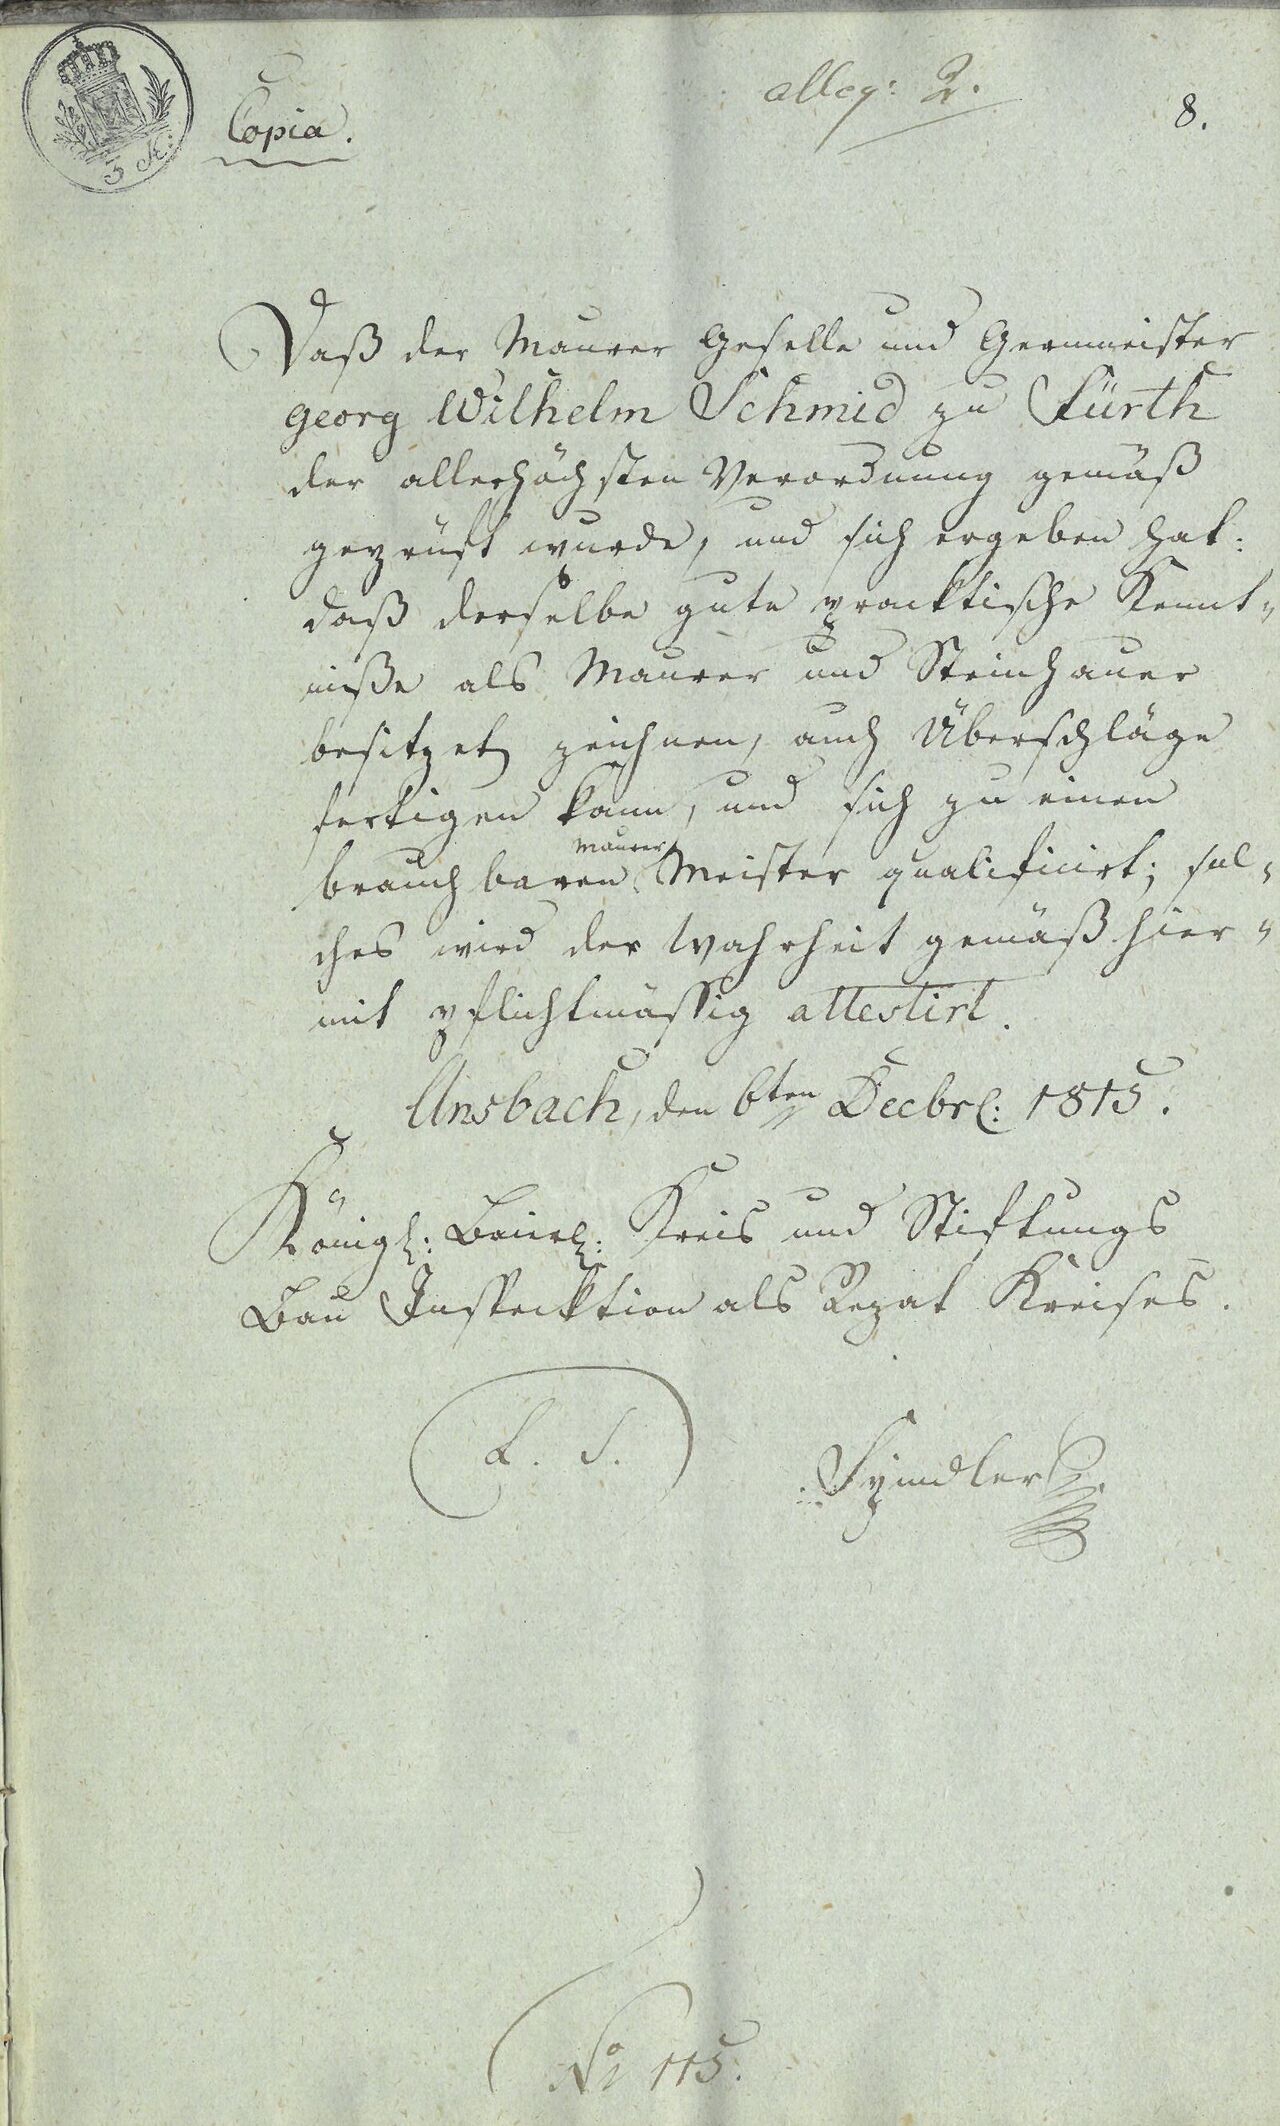 Copia.
alleg: 2.
8.
3 K:
Daß der Maurer Geselle und Germeister
Georg Wilhelm Schmid zu Fürth
der allerhöchsten Verordnung gemäß
geprüft wurde, und sich ergeben hat:
daß derselbe gute pracktische Kennt-
niße als Maurer und Steinhauer
besitzet, zeichnen, auch Überschläge
fertigen kann, und sich zu einen
Maurer
brauchbaren Meister qualificirt; sol-
ches wird der Wahrheit gemäß hier-
mit pflichtmässig attestirt.
Ansbach, den 6ten Decbr: 1815.
Königl: Baierl: Kreis und Stiftungs
Bau Inspecktion als Rezat Kreises.
L. S.
Spindler
No 115.